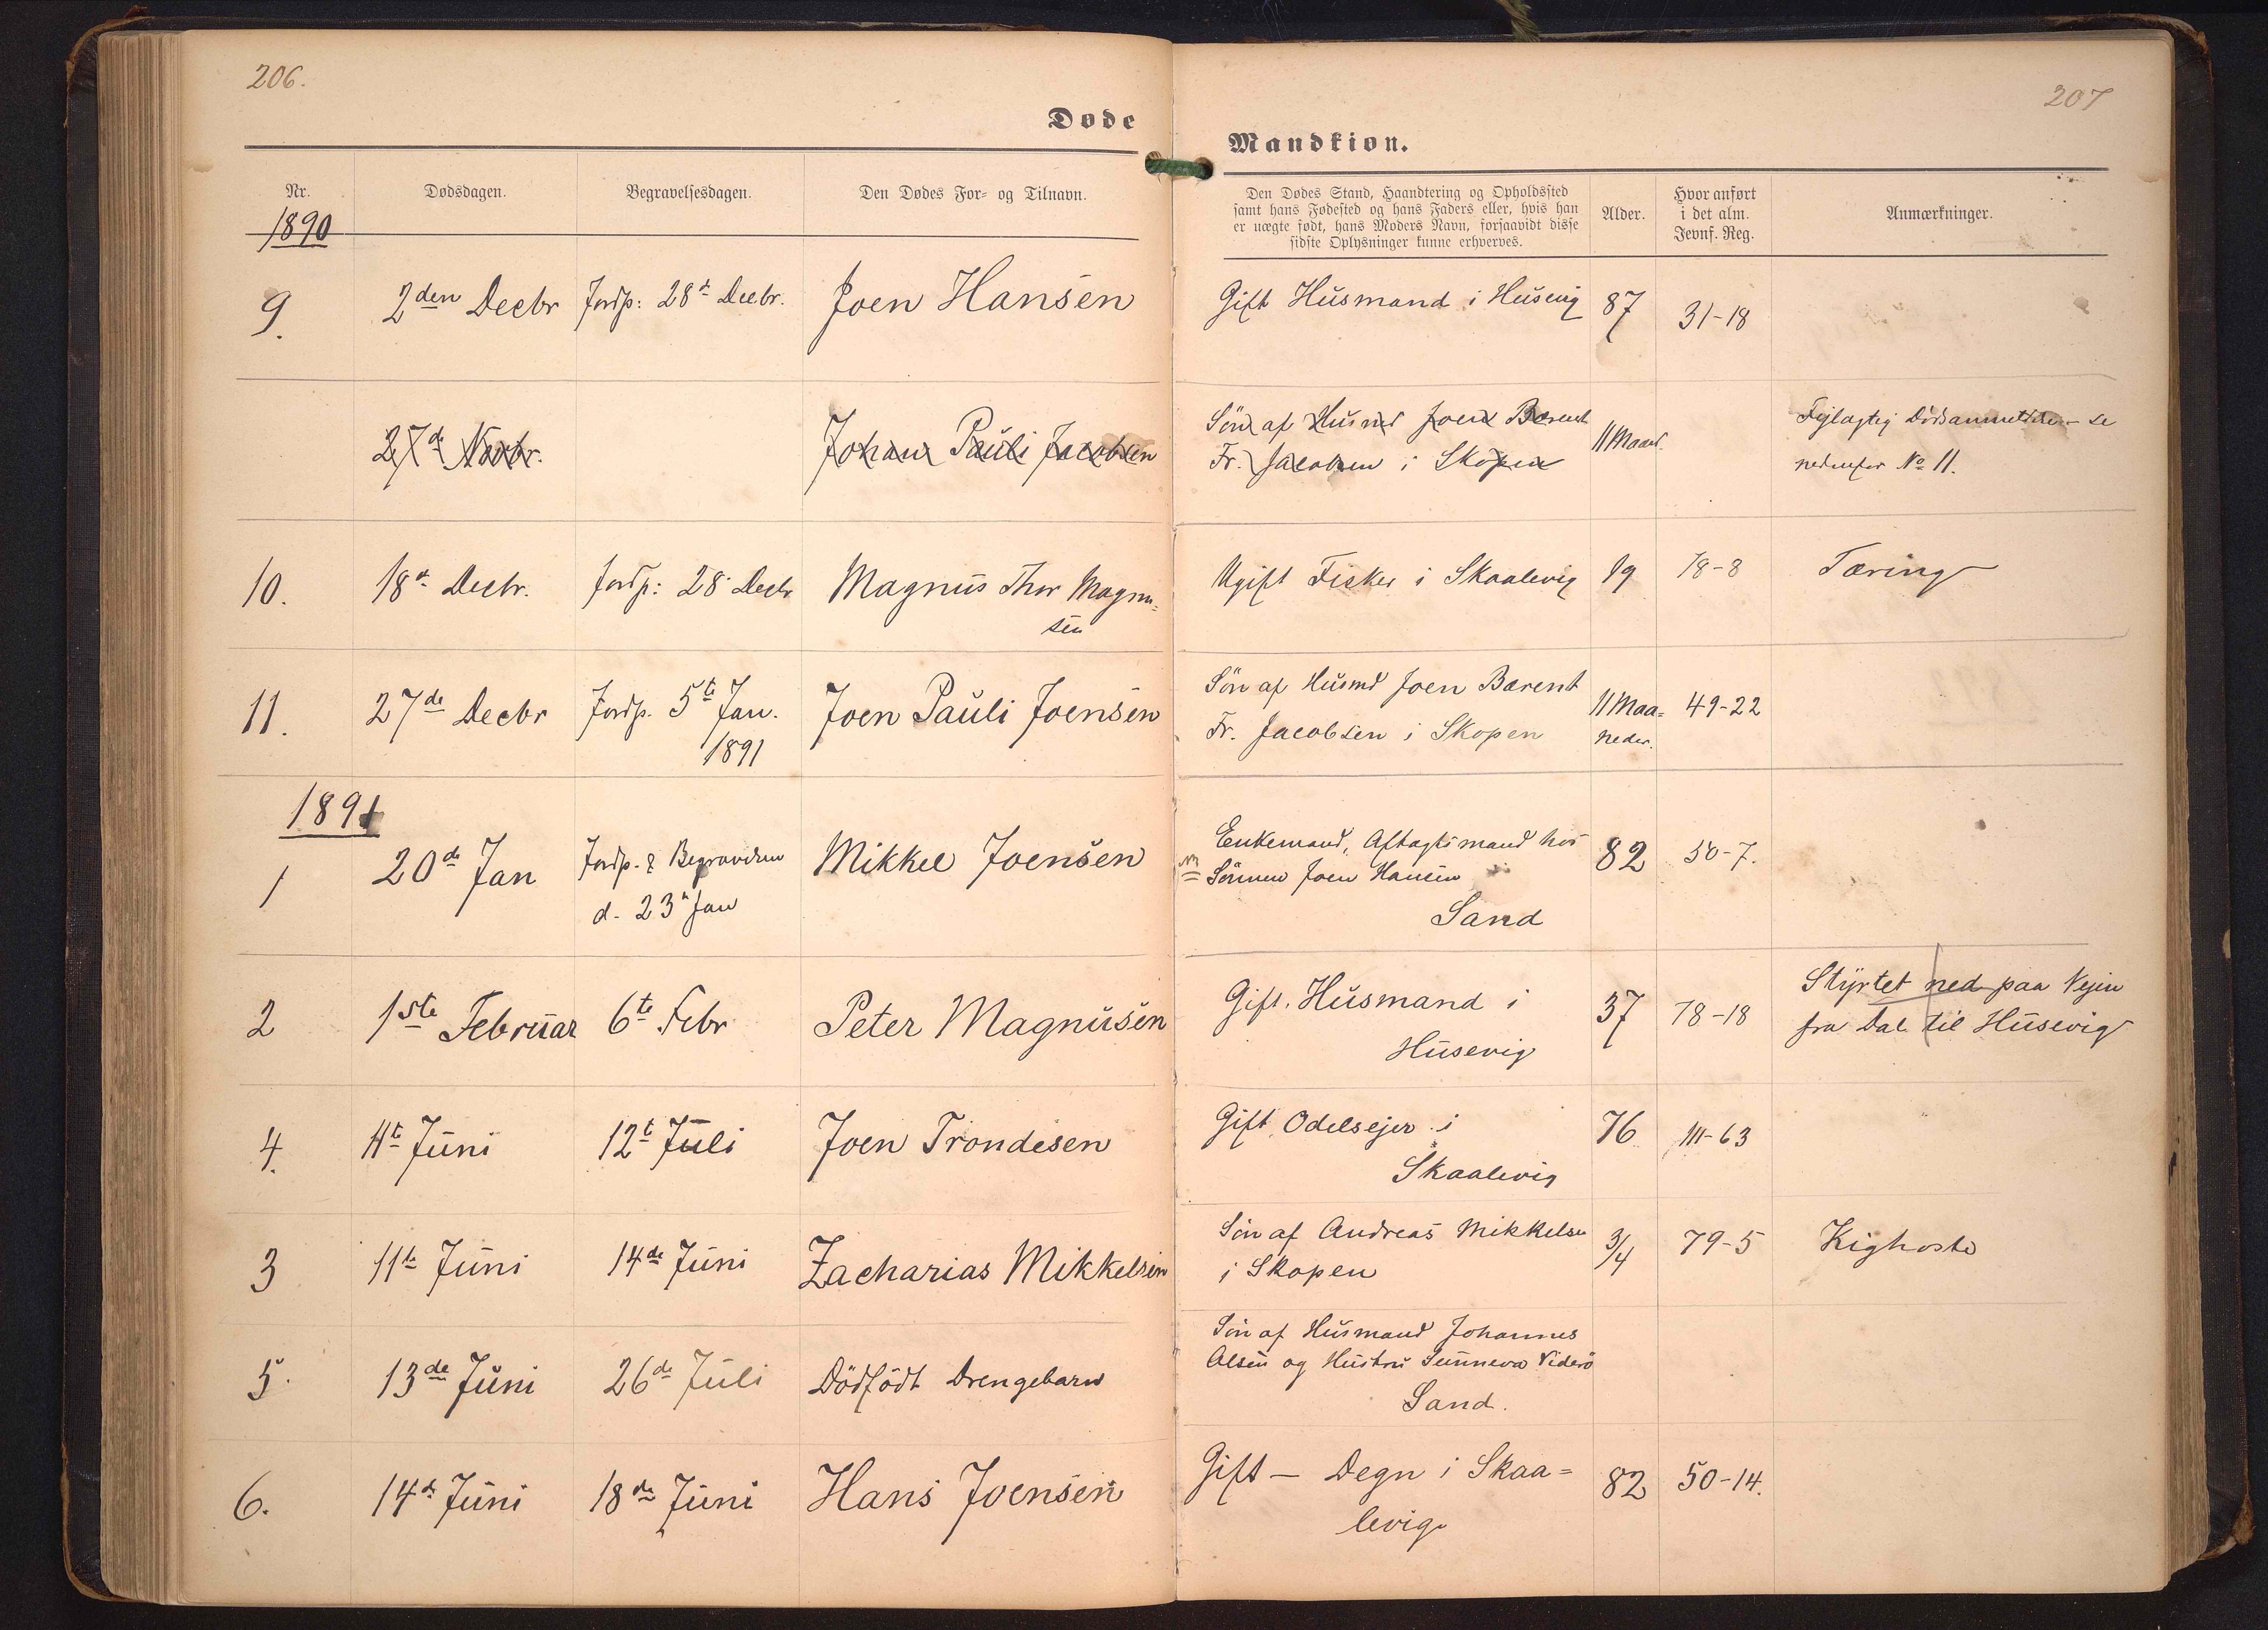 206.
207
Døde
Mandkiøn.
Nr.
Dødsdagen.
Begravelsesdagen.
Den Dødes For- og Tilnavn.
Den Dødes Stand, Haandtering og Opholdssted
samt hans Fødested og hans Faders eller, hvis han
er uægte født, hans Moders Navn, forsaavidt disse
sidste Oplysninger kunne erhverves.
Alder.
Hvor anført
i det alm.
Jevnf. Reg.
Anmærkninger.
1890
9.
2den Decbr
Jordp: 28d Decbr.
Joen Hansen
Gift Husmand i Husevig
87
31-18
27de Novbr.
Johan Pauli Jacobsen
Søn af Husmd Joen Barent
Fr. Jacobsen i Skopen
11 Maand.
Fejlagtig Dødsanmeldelse - se
nedenfor No 11.
10.
18d Decbr.
Jordp: 28 Decbr
Magnus Thor Magnu-
sen
Ugift Fisker i Skaalevig
19
78-8
Tæring
11.
27de Decbr
Jordp. 5te Jan.
1891
Joen Pauli Joensen
Søn af Husmd Joen Barent
Fr. Jacobsen i Skopen
11 Maa=
neder.
49-22
1891
1
20de Jan
Jordp. & Begravelsen
d. 23d Jan
Mikkel Joensen
Enkemand, Aftagtsmand hos
Sønnen Joen Hansen
Sand
82
50-7.
2
1ste Februar
6te Febr
Peter Magnusen
Gift. Husmand i
Husevig
37
78-18
Styrtet ned paa Vejen
fra Dal til Husevig
4.
4te Juni
12t Juli
Joen Trondesen
Gift Odelsejer i
Skaalevig
76
111-63
3
11te Juni
14de Juni
Zacharias Mikkelsen
Søn af Andreas Mikkelsen
i Skopen
3/4
79-5
Kighoste
5.
13de Juni
26de Juli
Dödfödt Drengebarn
Søn af Husmand Johannes
Olsen og Hustru Sunneva Viderø
Sand.
6.
14de Juni
18de Juni
Hans Joensen
Gift - Degn i Skaa=
levig
82
50-14.